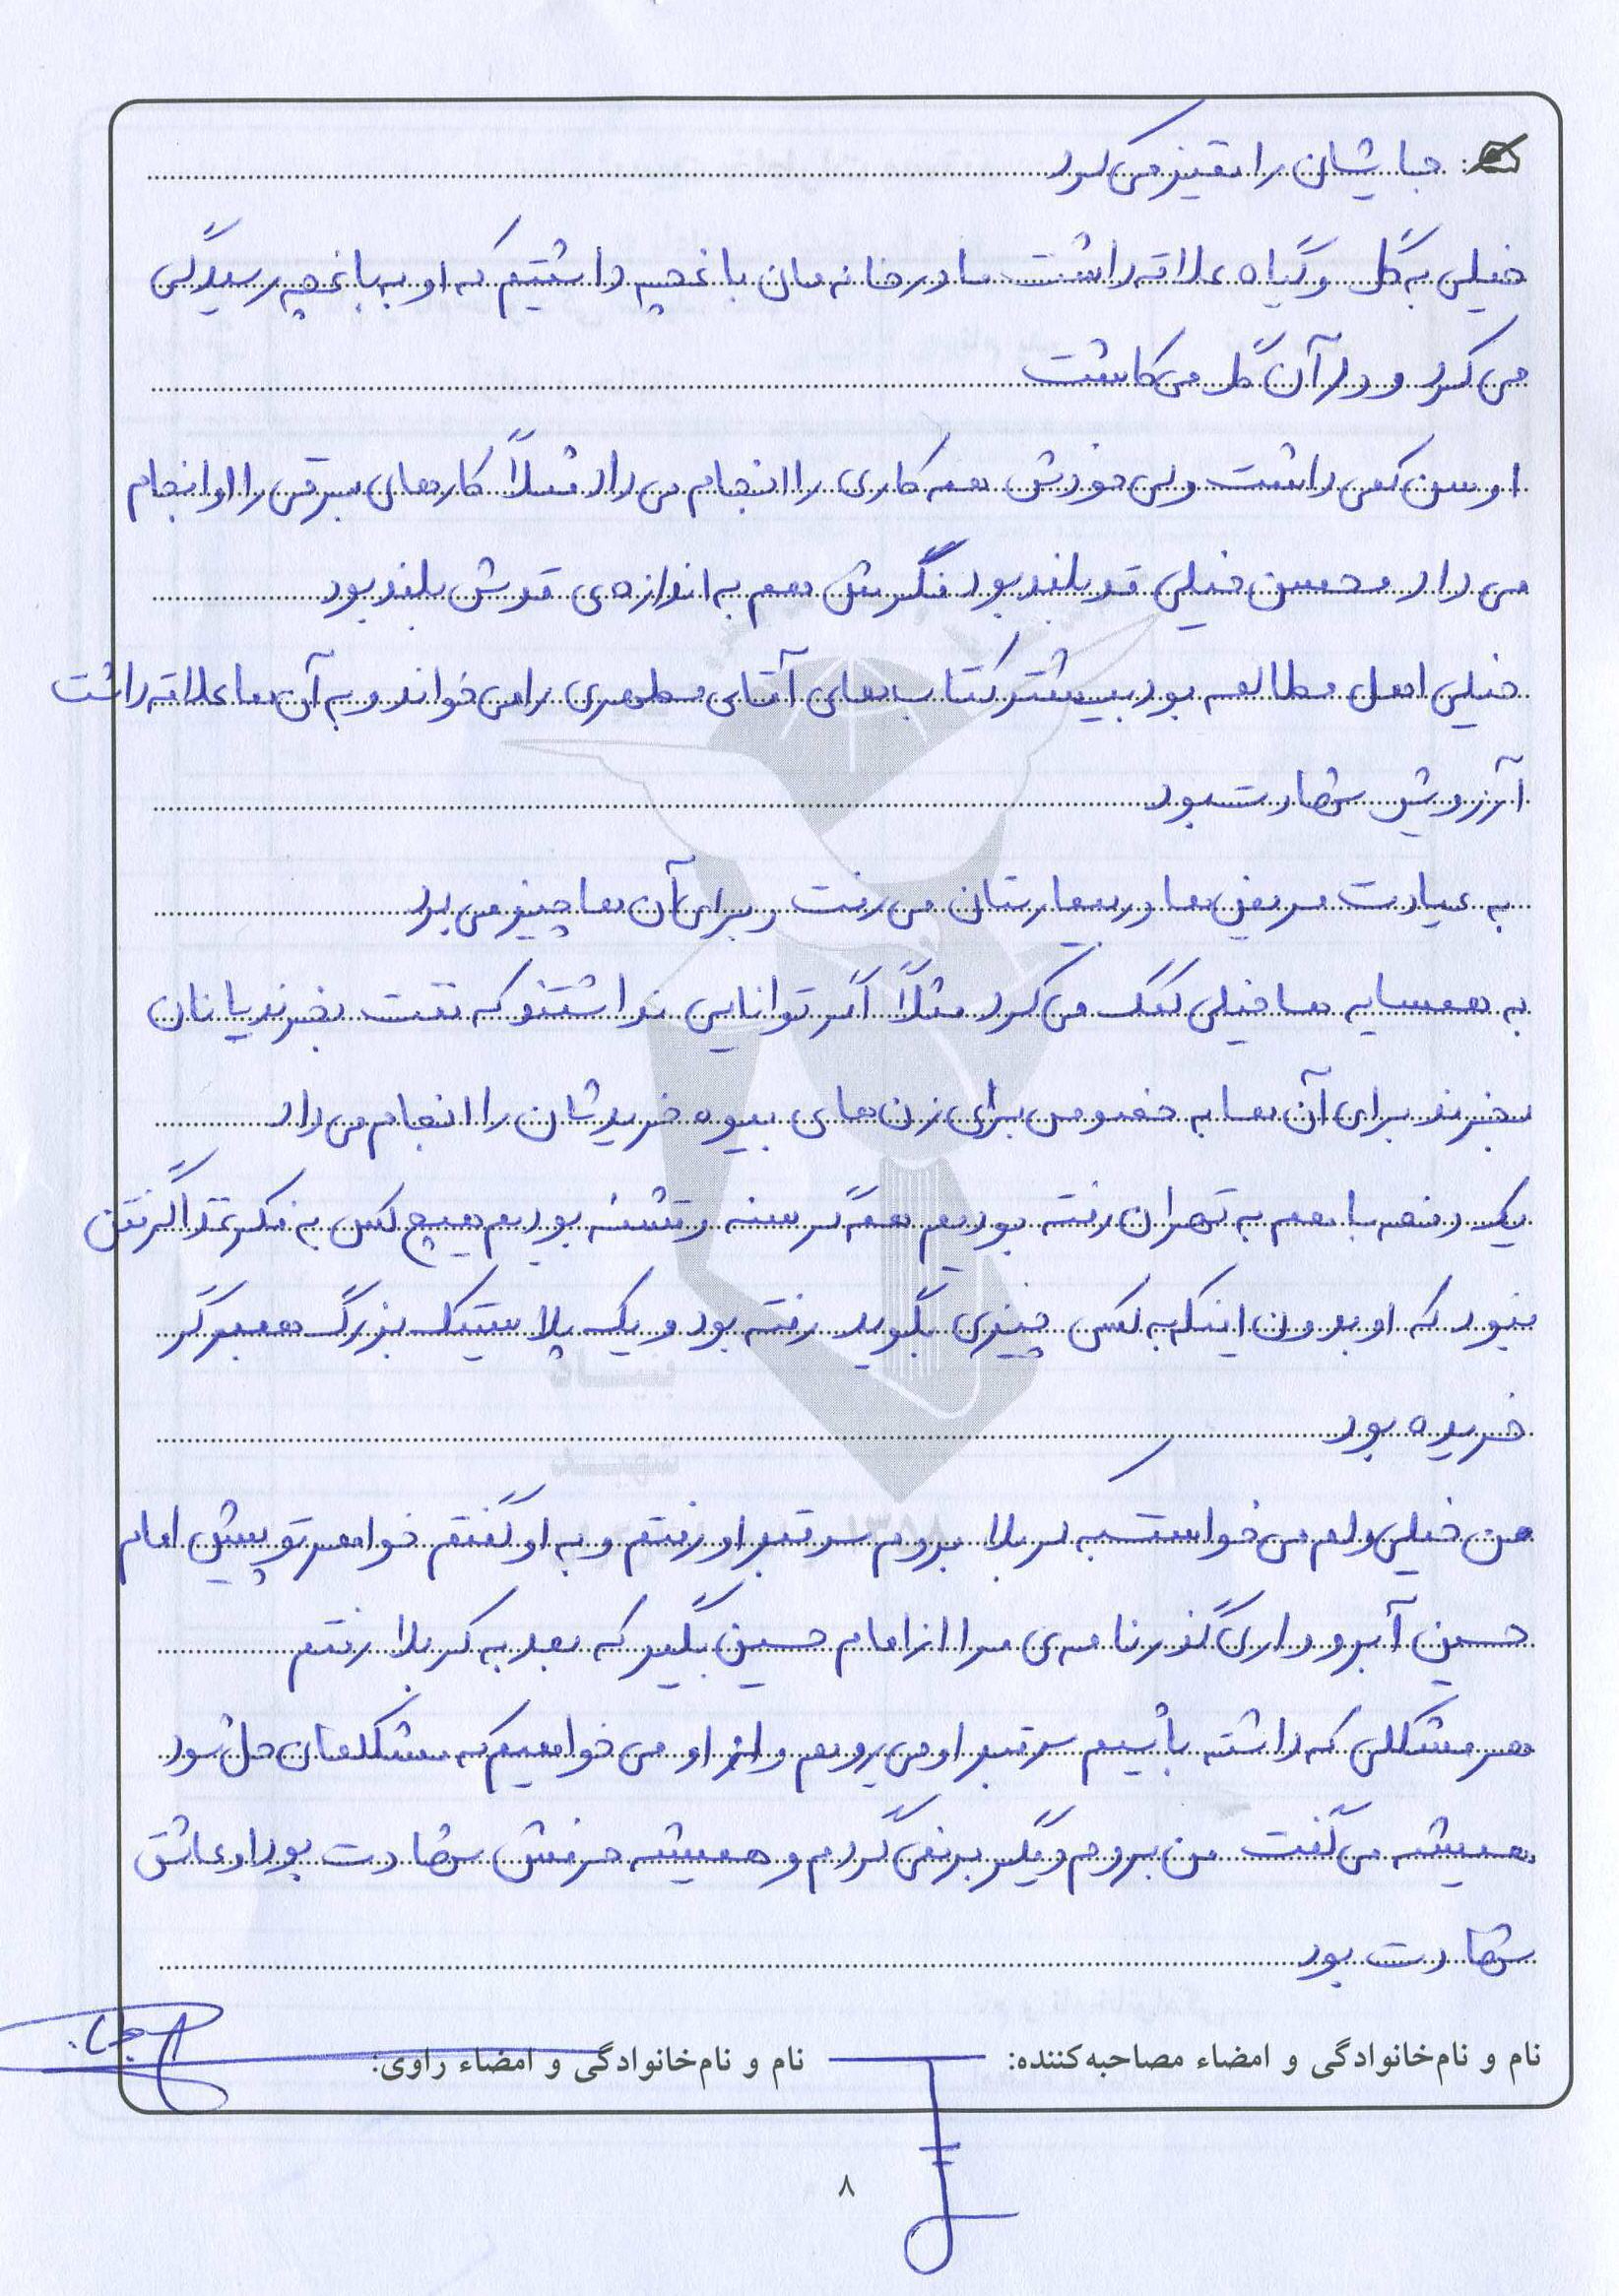 جایشان را تمیز می کرد
خیلی به گل و گیاه علاقه داشت ما در خانه مان باغچه داشتیم که او به باغچه رسیدگی
می کرد و در آن گل می کاشت
او سن کمی داشت ولی خودش همه کاری را انجام می داد مثلاً کارهای برقی را او انجام
می داد محسن خیلی قد بلند بود نگرشش هم به اندازه ی قدش بلند بود
خیلی اهل مطالعه بود بیشتر کتاب های آقای مطهری را می خواند و به آن ها علاقه داشت
آرزویش شهادت بود
به عیادت مریض ها در بیمارستان می رفت و برای آن ها چیز می برد
به همسایه ها خیلی کمک می کرد مثلاً اگر توانایی نداشتند که نفت بخرند یا نان
بخرند برای آن ها به خصوص برای زن های بیوه خریدشان را انجام می داد
یک دفعه با هم به تهران رفته بودیم همه گرسنه و تشنه بودیم هیچ کس به فکر غذا گرفتن
نبود که او بدون اینکه به کسی چیزی بگوید رفته بود و یک پلاستیک بزرگ همبرگر
خریده بود
من خیلی دلم می خواست به کربلا بروم سر قبر او رفتم و به او گفتم خواهر تو پیش امام
حسین آبرو داری گذرنامه ی مرا از امام حسین بگیر که بعد به کربلا رفتم
هر مشکلی که داشته باشیم سر قبر او می رویم و از او می خواهیم که مشکلمان حل شود
همیشه می گفت من بروم دیگر برنمی گردم و همیشه حرفش شهادت بود او عاشق
شهادت بود
نام و نام‌خانوادگی و امضاء مصاحبه‌کننده: نام و نام‌خانوادگی و امضاء راوی:
۸